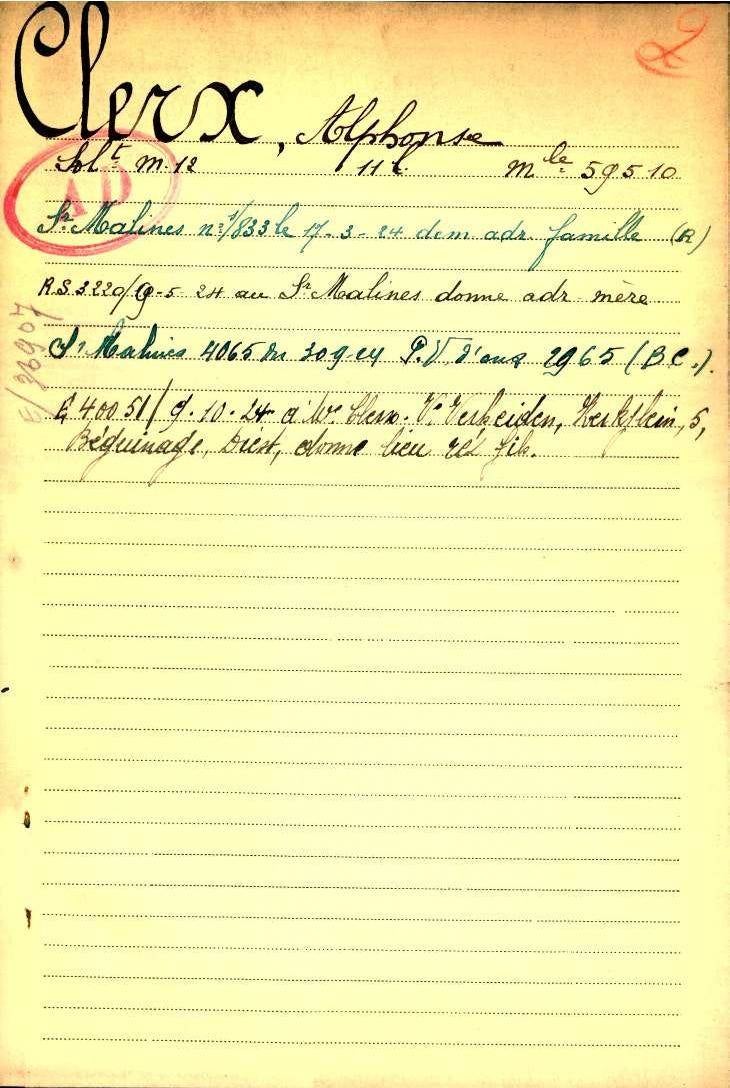 2
Clerx, Alphonse
Solt m. 12 11 l. mle 59510
AD
Sr Malines no 1/833 le 17-3-24 dem adr famille (R)
R.S. 3220/9-5 24 au Sr Malines donne adr mère
E/36907
Sr Malines 4065 du 30 9 24 P.V. d'exh 2965 (B.C.).
E 40051/ 9-10-24 à We Clerx. Ve Verheiden, 5,
Béguinage, Diest, donne lieu fils.